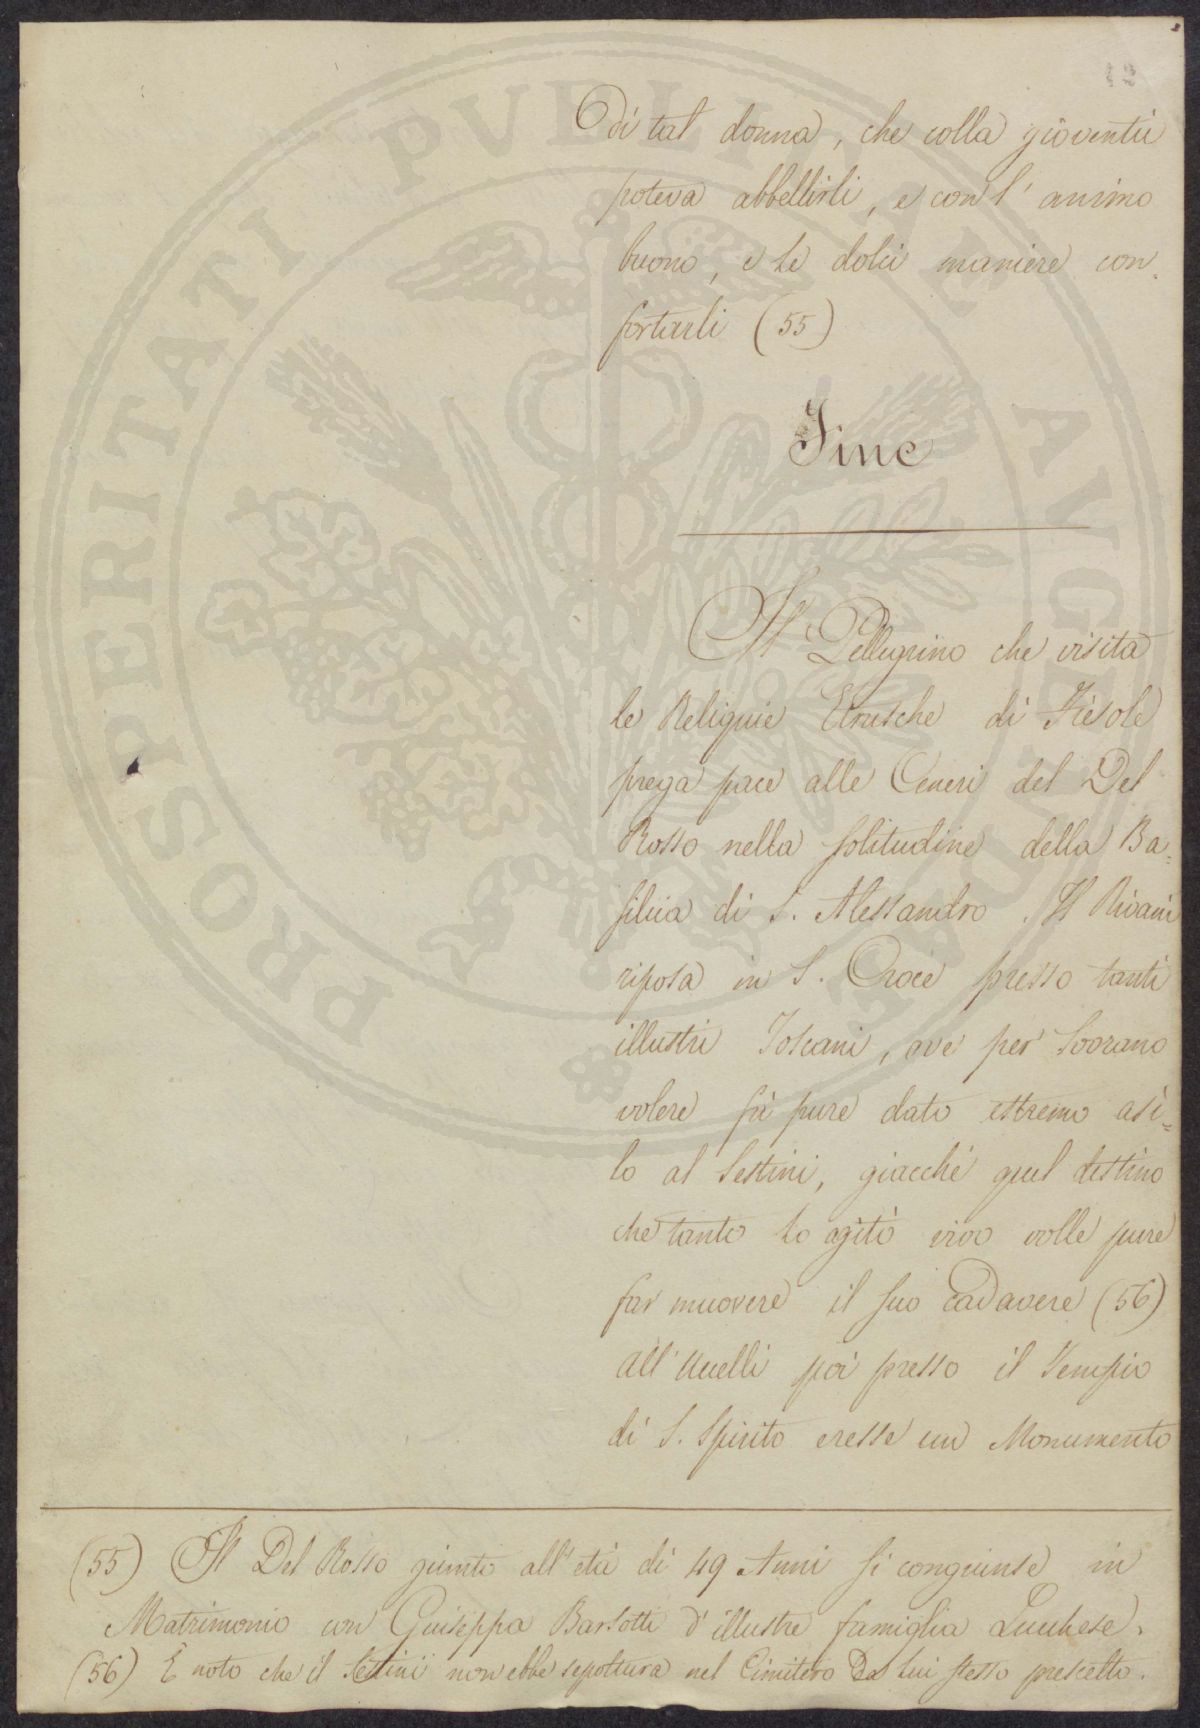 di tal donna, che colla gioventù
poteva abbellirli, e con l'animo
buono, e le dolci maniere con-
fortarli (55)
Fine
Il Pellegrino che visita
le Reliquie Etrusche di Fiesole
prega pace alle Ceneri del Del
Rosso nella solitudine della Ba=
silica di S. Alessandro. Il
riposa in S. Croce presso tanti
illustri Toscani, ove per Sovrano
volere fù pure dato estremo asi=
lo al Sestini, giacchè quel destino
che tanto lo agitò vivo volle pure
far muovere il suo cadavere (56)
All' poi presso il Tempio
di S. Spirito eresse un Monumento
(55) Il Del Rosso giunto all'età di 49 Anni si congiunse in
Matrimonio con Giuseppa Barsotti d'illustre famiglia Lucchese.
(56) È noto che il Sestini non ebbe sepoltura nel Cimitero da lui stesso prescelto.
PROSPERITATI PVBLICAE AVGENDAE